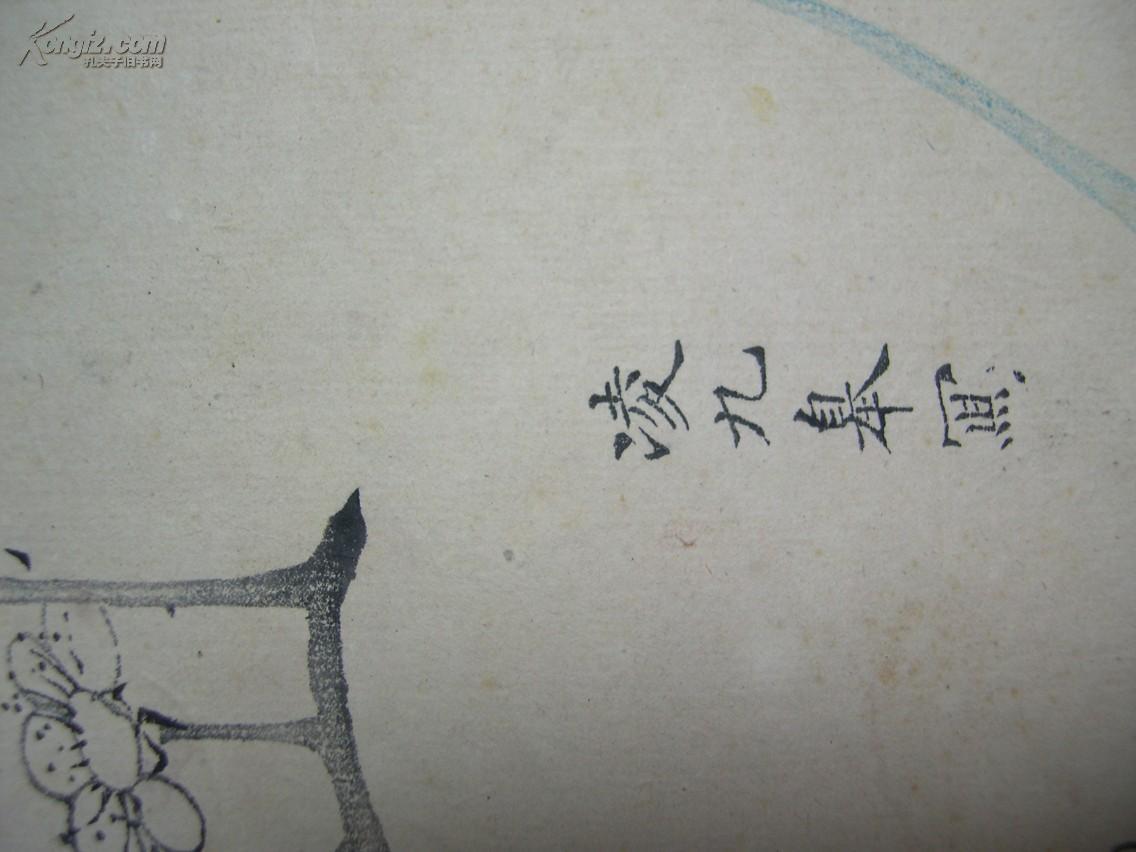 Kongfz.com
孔夫子旧书网
凌九臯冩